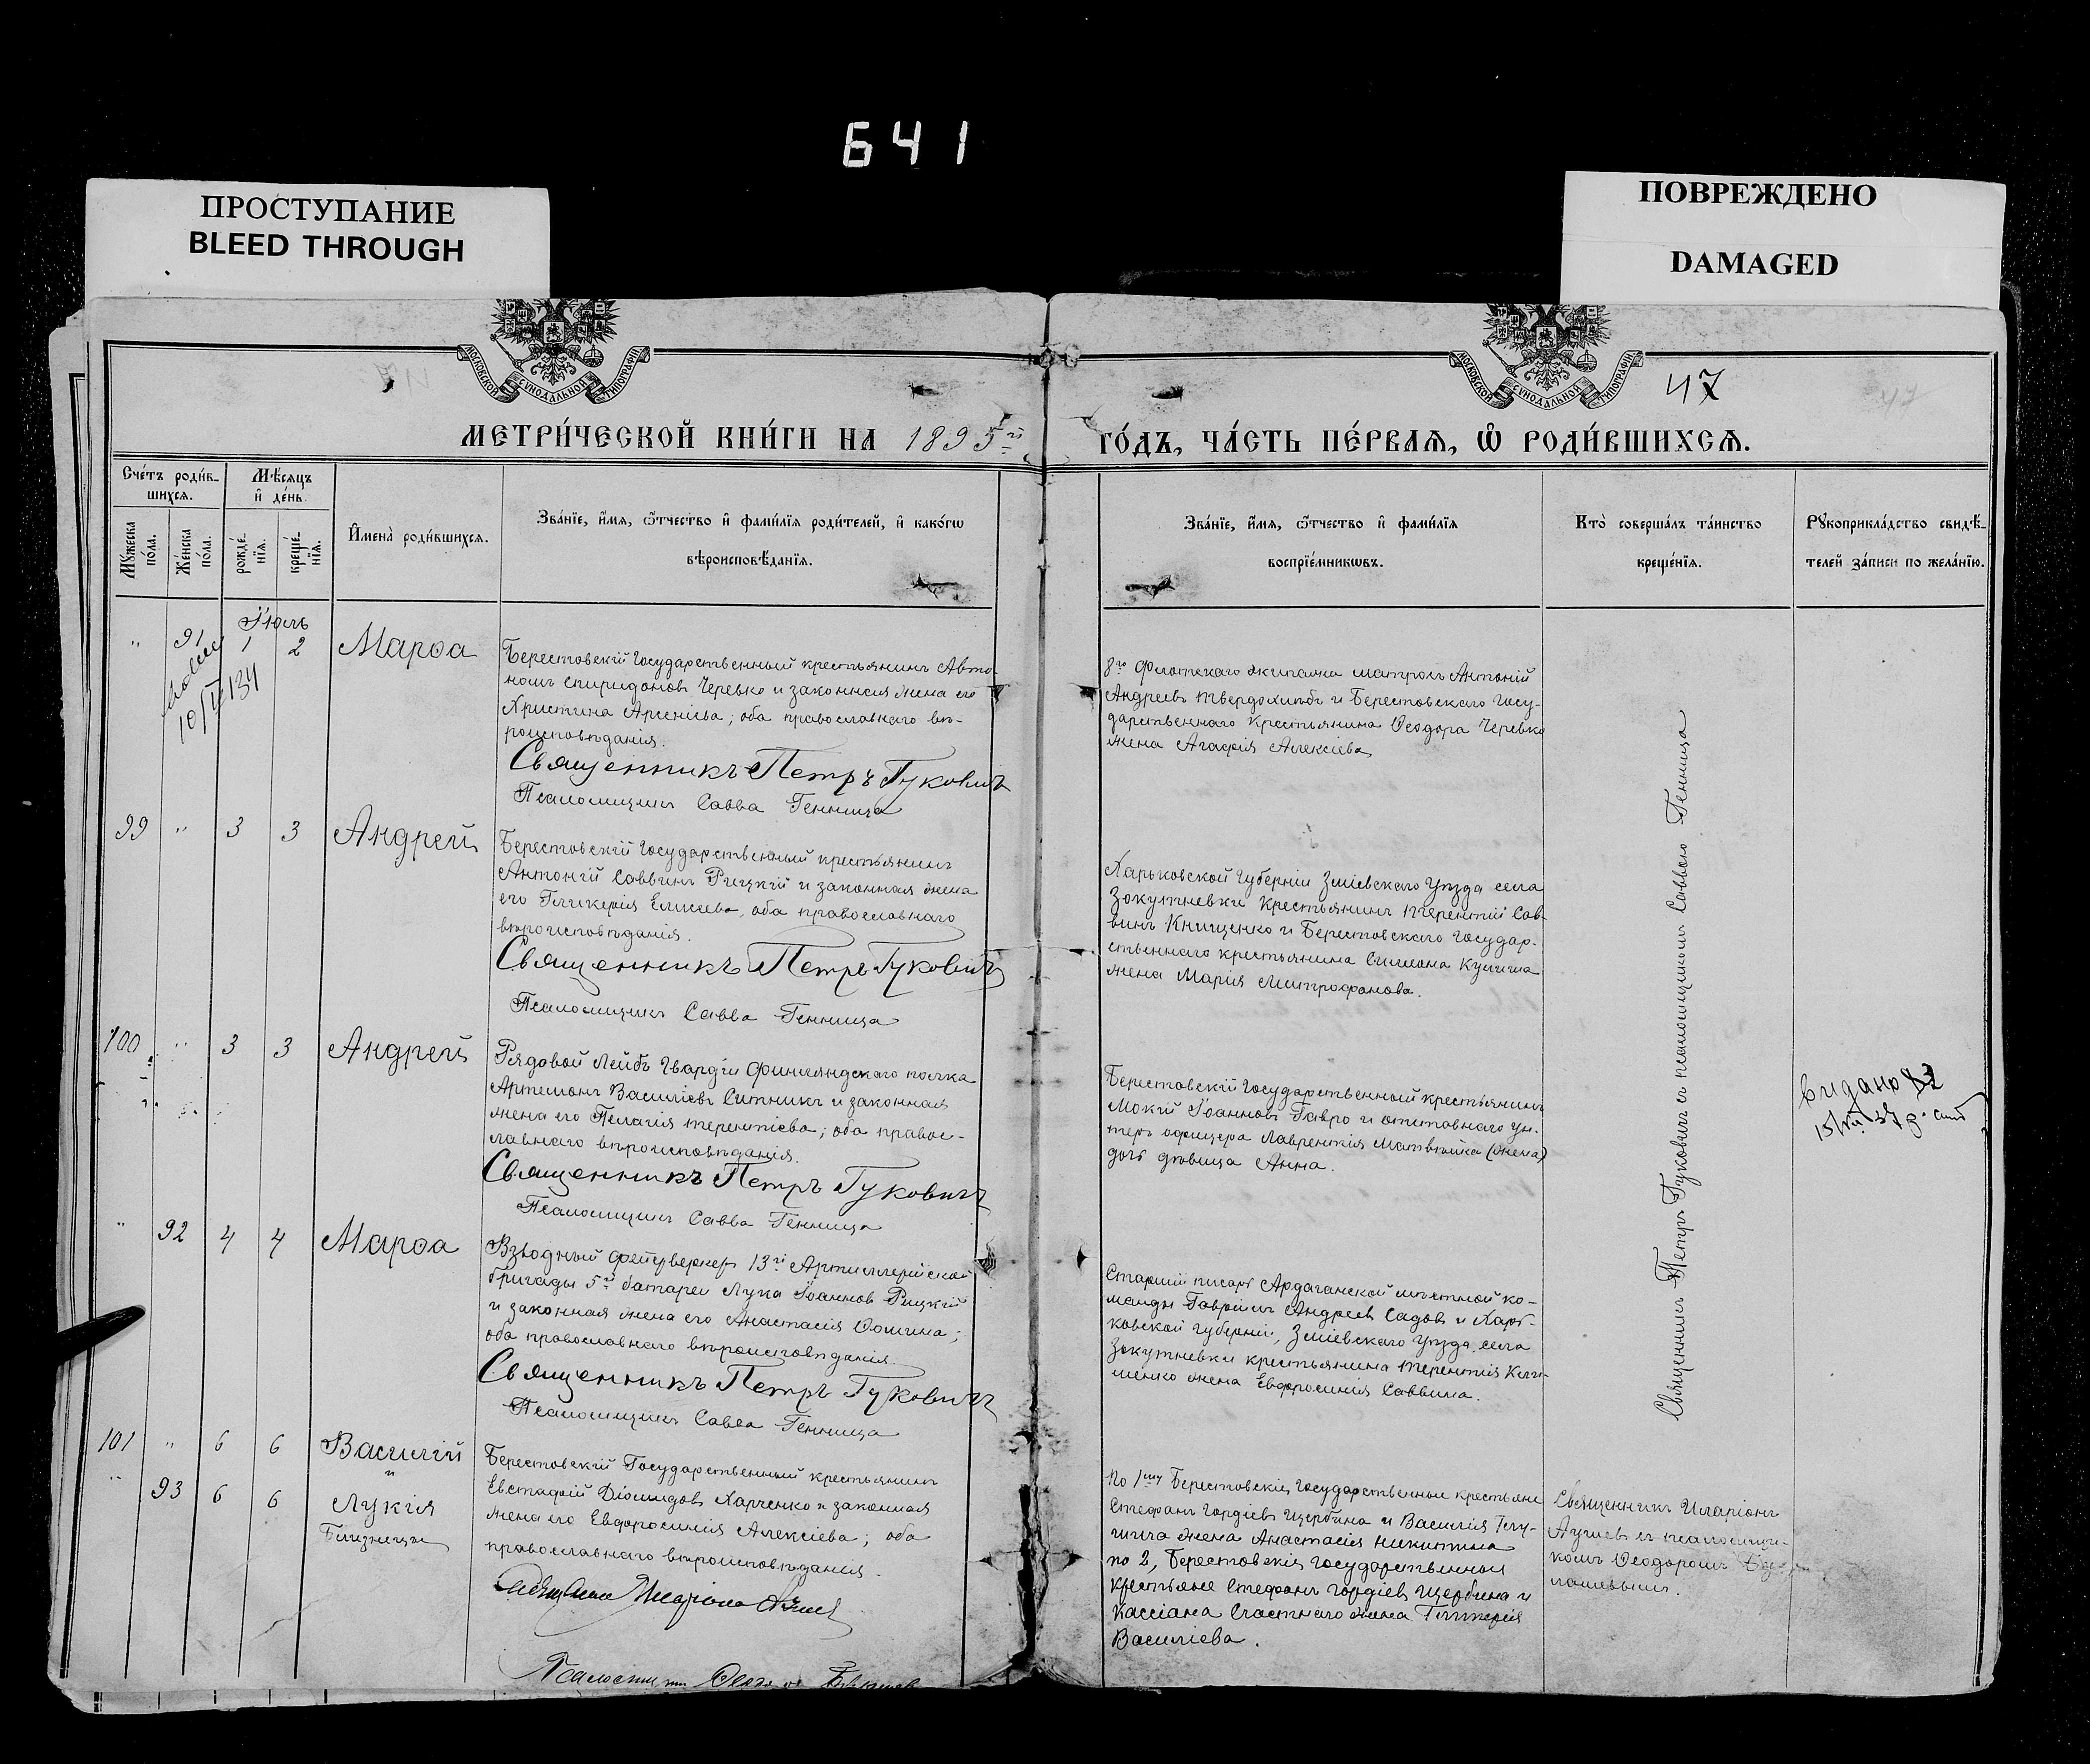 641
ПРОСТУПАНИЕ
BLEED THROUGH
ПОВРЕЖДЕНО
DAMAGED
МОСКОВСКОЙ СѴНОДАЛЬНОЙ ТИПОГРАФІИ
МОСКОВСКОЙ СѴНОДАЛЬНОЙ ТИПОГРАФІИ
47
МЕТРИ́ЧЕСКОЙ КНИ́ГИ НА 1895й
ГО́ДЪ, ЧА́СТЬ ПЕ́РВАѦ, Ѽ РОДИ́ВШИХСѦ.
Сче́тъ роди́в-
шихся.
Мѣ́сяцъ
и҆ де́нь.
Мꙋ́жеска по́ла.
Же́нска по́ла.
рожде́нїѧ.
креще́нїѧ.
И҆мена̀ роди́вшихсѧ.
Зва́нїе, и҆́мѧ, ѻ҆́тчество и҆ фами́лїѧ роди́телей, и҆ како́гѡ
вѣроисповѣ́данїѧ.
Зва́нїе, и҆́мѧ, ѻ҆́тчество и҆ фами́лїѧ
воспрїе́мникѡвъ.
Кто̀ соверша́лъ та́инство
креще́нїѧ.
Рꙋкоприкла́дство свидѣ́-
телей за́писи по жела́нїю.
Іюль
" 91 1 2 Марѳа
10/V 134
Берестовскій Государственный крестьянинъ Авто-
номъ Спиридоновъ Черевко и законная жена его
Христина Арсеніева; оба православнаго вѣ-
роисповѣданія.
Священникъ Петръ Гуковичъ
Псаломщикъ Савва Генница
8го Флотскаго экипажа матросъ Антоній
Андреевъ Твердохлѣбъ и Берестовскаго Госу-
дарственнаго крестьянина Ѳеодора Черевко
жена Агаѳія Алексіева
99 " 3 3 Андрей
Берестовскій Государственный крестьянинъ
Антоній Саввинъ Рицкій и законная жена
его Гликерія Елисеева, оба православнаго
вѣроисповѣданія.
Священникъ Петръ Гуковичъ
Псаломщикъ Савва Генница
Харьковской Губерніи Зміевскаго Уѣзда села
Закутневки крестьянинъ Терентій Сав-
винъ Книщенко и Берестовскаго Государ-
ственнаго крестьянина Симеона Кулиша
жена Марія Митрофанова.
100 " 3 3 Андрей
Рядовой Лейбъ Гвардіи Финляндскаго полка
Артемонъ Василіевъ Ситникъ и законная
жена его Пелагія Терентіева; оба правос-
лавнаго вѣроисповѣданія.
Священникъ Петръ Гуковичъ
Псаломщикъ Савва Генница
Берестовскій Государственный крестьянинъ
Мокій Іоанновъ Гавро и отставнаго ун-
теръ офицера Лаврентія Матвѣйка (жена)
дочь дѣвица Анна.
видано
" 92 4 4 Марѳа
Взводный фейерверкеръ 13й Артиллерійской
бригады 5й батареи Лука Іоанновъ Рицкій
и законная жена его Анастасія Ѳомина;
оба православнаго вѣроисповѣданія.
Священникъ Петръ Гуковичъ
Псаломщикъ Савва Генница
Старшій писарь Ардаганской мѣстной ко-
манды Гавріилъ Андреевъ Садовъ и Харь-
ковской губерніи, Зміевскаго Уѣзда, села
Закутневки крестьянина Терентія
жена Евфросинія Саввина.
Священникъ Петръ Гуковичъ съ псаломщикомъ Саввою Генница
101 " 6 6 Василій
и
" 93 6 6 Лукія
Близнецы
Берестовскій Государственный крестьянинъ
Евстафій Діомидовъ Харченко и законная
жена его Евфросинія Алексіева; оба
православнаго вѣроисповѣданія.
Псаломщикъ
По 1му Берестовскіе Государственные крестьяне
Стефанъ Гордіевъ Щербина и Василія
жена Анастасія Никитина
по 2, Берестовскіе Государственные
крестьяне Стефанъ Гордіевъ Щербина и
Кассіана Счастнаго жена Гликерія
Василіева.
Священникъ Иларіонъ
съ псаломщи-
комъ Ѳеодоромъ